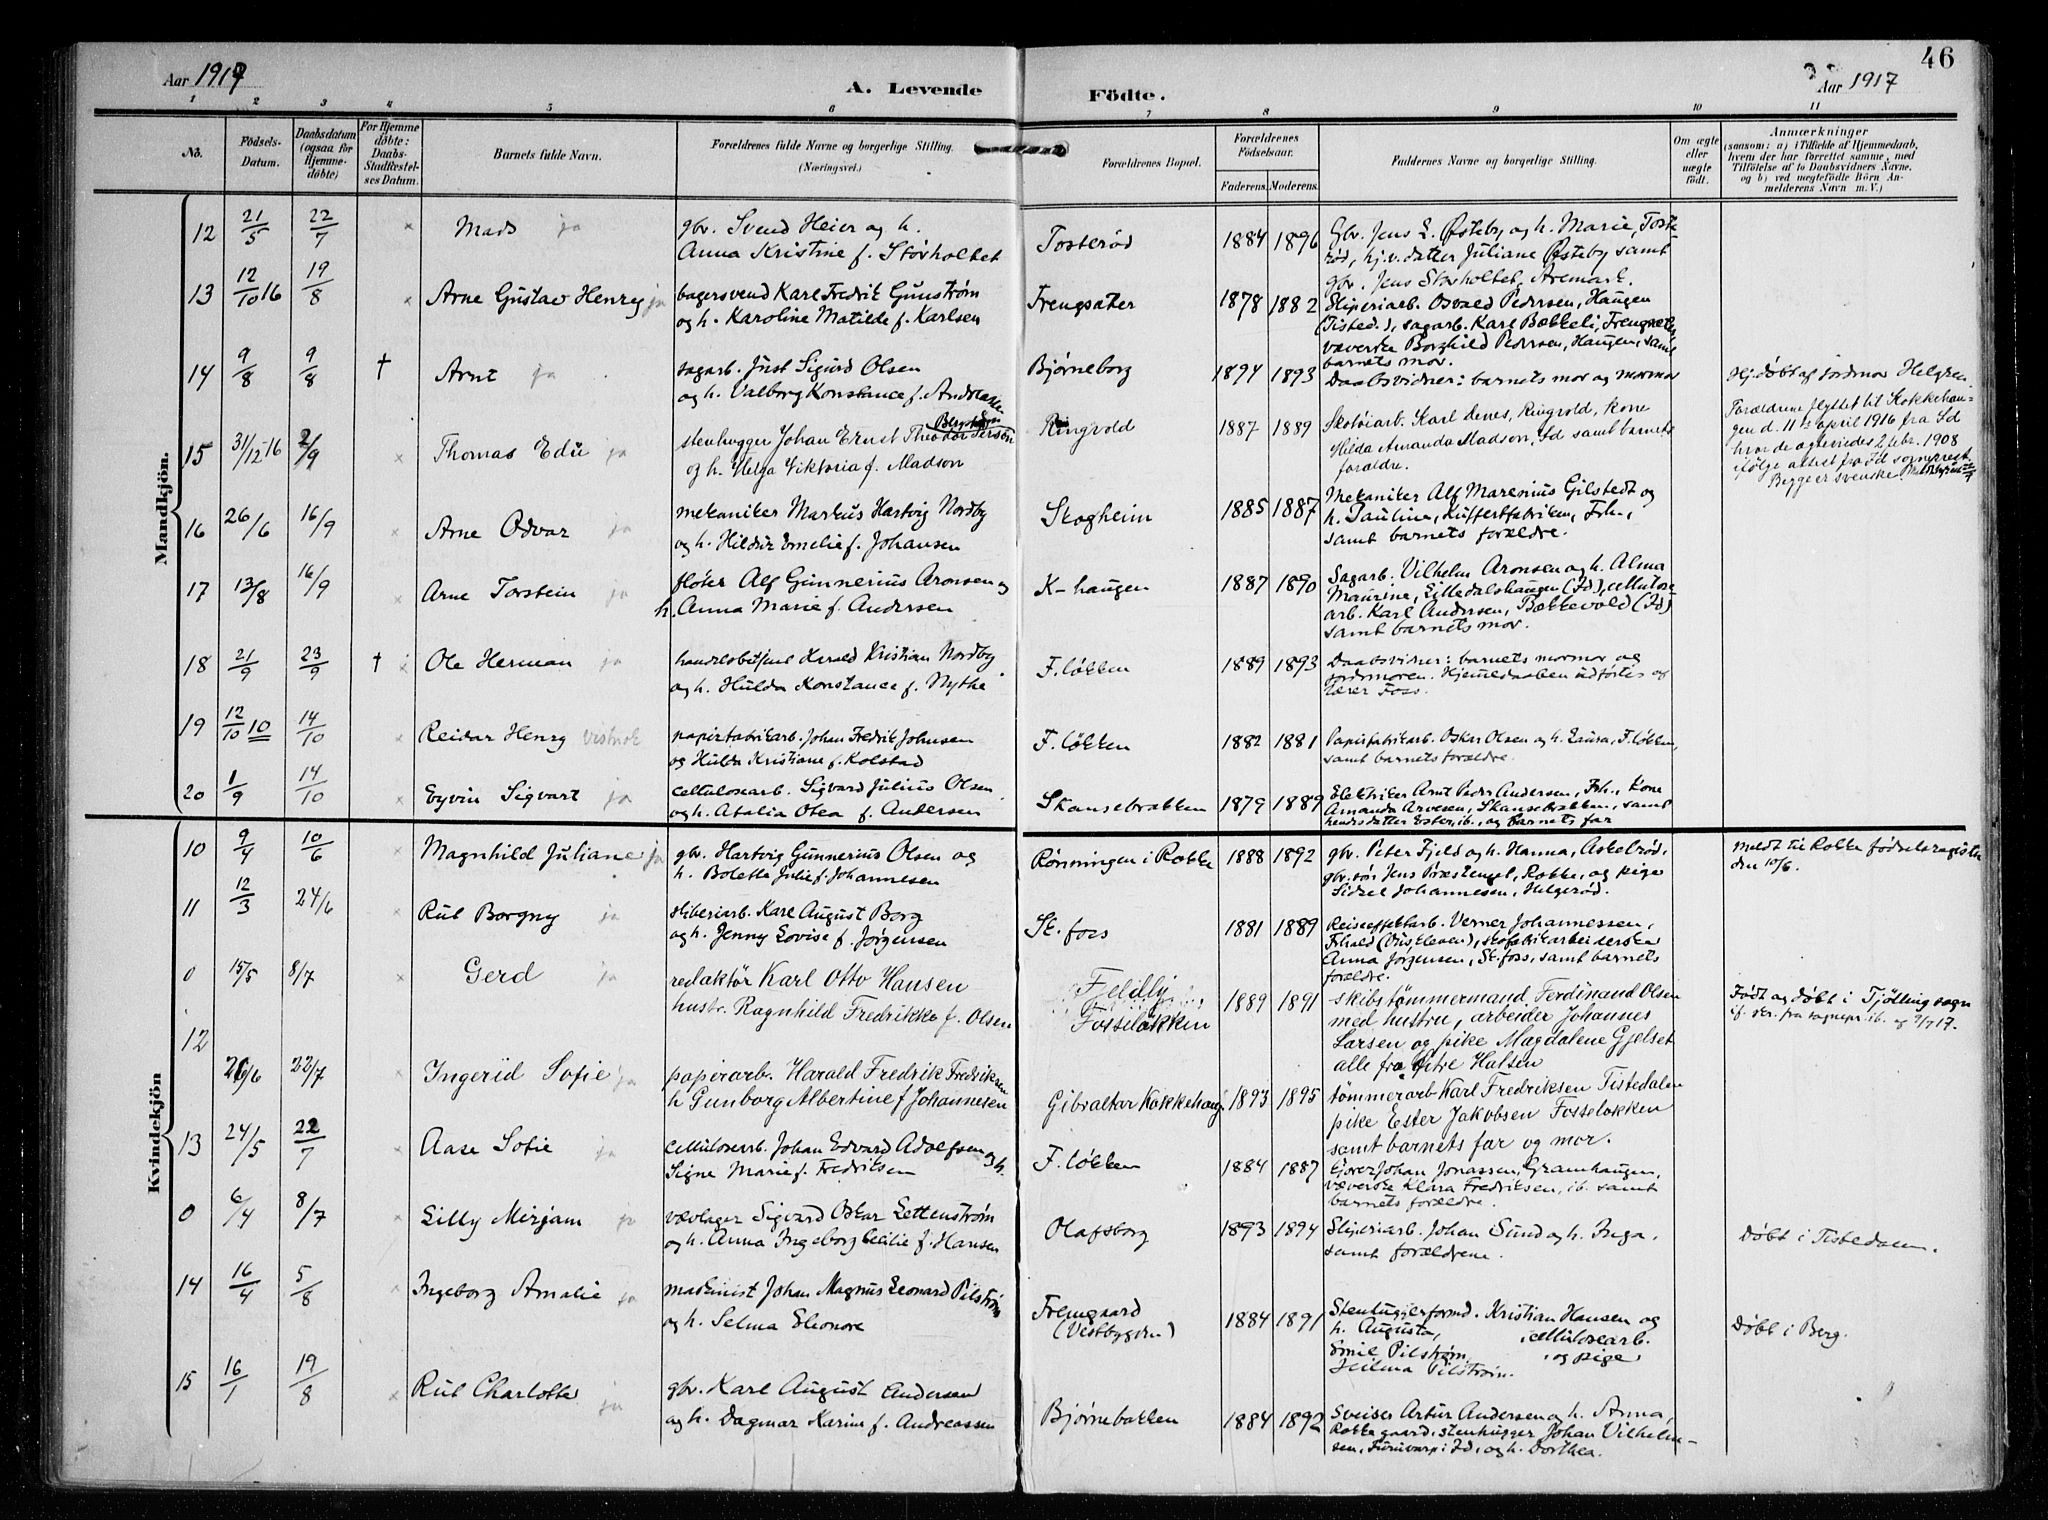 46
Aar 1917
A. Levende
Födte.
Aar 1917
1 2 3 4 5 6 7 8 9 10 11
No.
Födsels-
Datum.
Daabsdatum
(ogsaa for
Hjemme-
döbte)
For Hjemme
døbte:
Daabs-
Stadfæstel-
ses Datum.
Barnets fulde Navn.
Forældrenes fulde Navne og borgerlige Stilling.
(Næringsvei.)
Forældrenes Bopæl.
Forældrenes
Födselsaar.
Faderens. Moderens.
Faddernes Navne og borgerlige Stilling.
Om ægte
eller
uægte
født.
Anmærkninger
(saasom: a) i Tilfælde af Hjemmedaab,
hvem der har forrettet samme, med
Tilföielse af to Daabsvidners Navne,
og b) ved uægtefödte Börn An-
melderens Navn m. V.)
Mandkjön.
12 21/5 22/7 Mads ja
gbr. Svend Heier og h.
Anna Kristine f. Storholtet
Tosterød 1884 1896
Gbr. Jens L. Østeby og h. Marie, Toste-
rød, hj.v. datter Juliane Østeby samt
gbr. Jens Storholtet, Aremark.
13 12/10 16 19/8 Arne Gustav Henry ja
bagersvend Karl Fredrik Gunstrøm
og h. Karoline Matilde f. Karlsen
Frengsater 1878 1882
Sliperiarb. Osvald Pedersen, Haugen
(Tisted.), sagarb. Karl Bækkeli,
væverske Borghild Pedersen, Haugen, samt
barnets mor.
14 9/8 9/8 † Arnt ja
sagarb. Just Sigurd Olsen
og h. Valborg Konstance f. Andreassen
Bjørneborg 1894 1893
Daabsvidner: barnets mor og mormor
Hj.døbt af jordmor Helgren
15 31/12-16 2/9 Thomas Edu ja
stenhugger Johan Ernst Theodor
og h. Helga Viktoria f. Madson
Ringvold 1887 1889
Skotøiarb. Karl Enes, Ringvold, kone
Hilda Amanda Madson, Id samt barnets
forældre.
Forældrene flyttet til Kokkehau-
gen d. 11te april 1916 fra Id
hvor de egteviedes 2 febr. 1908
ifølge attest fra Id sogneprest.
Begge er svenske.
16 26/6 16/9 Arne Odvar ja
mekaniker Markus Hartvig Nordby
og h. Hildur Emelie f. Johansen
Skogheim 1885 1887
Mekaniker Alf Marenius Gilstedt og
h. Pauline, Kuffertfabriken, Frh.,
samt barnets forældre.
17 13/8 16/9 Arne Torstein ja
fløter Alf Gunnerius Aronsen og
h. Anna Marie f. Andersen
K-haugen 1887 1890
Sagarb. Vilhelm Aronsen og h. Alma
Maurine, Lilledalshaugen (Id), cellulose-
arb. Karl Andersen, Bækkevold (Id)
samt barnets mor.
18 21/9 23/9 † Ole Herman ja
handelsbetjent Harald Kristian Nordby
og h. Hulda Konstance f. Nythe
F. løkken 1889 1893
Daabsvidner: barnets mormor og
jordmoren. Hjemmedaaben udførtes af
lærer Foss.
19 12/10 10 14/10 Reidar Henry vistnok
papirfabrikarb. Johan Fredrik Johnsen
og Hulda Kristiane f. Kolstad
F. løkken 1882 1881
Papirfabrikarb. Oskar Olsen og h. Laura, F. løkken,
samt barnets forældre.
20 1/9 14/10 Eyvin Sigvart ja
cellulosearb. Sigvard Julius Olsen
og h. Atalia Otea f. Andersen
Skansebakken 1879 1889
Elektriker Arnt Peder Andersen, Frh., Kone
Amanda Arvesen, Skansebakken, samt
hendes datter Ester, ib., og barnets far
Kvindekjön
10 9/4 10/6 Magnhild Juliane ja
gbr. Hartvig Gunnerius Olsen og
h. Bolette Julie f. Johannesen
Rønningen i Rokke 1888 1892
gbr. Peter Fjeld og h. Hanna, Askelrød,
gbr. søn Jens Præstengel, Rokke, og pige
Sidsel Johannesen, Helgerød.
Meldt til Rokke fødselsregister
den 10/6.
11 12/3 24/6 Rut Borgny ja
sliberiarb. Karl August Borg
og h. Jenny Lovise f. Jørgensen
St. foss 1881 1889
Reiseeffektarb. Verner Johannessen,
Frhald, skofabrikarbeiderske
Anna Jørgensen, St. foss, samt barnets
forældre.
0 15/5 8/7 Gerd ja
redaktør Karl Otto Hansen
hustr. Ragnhild Fredrikke f. Olsen
Fjeldly
Fosseløkken 1889 1891
skibstømmermand Ferdinand Olsen
med hustru, arbeider Johannes
Larsen og pike Magdalene Gjelset
alle fra Østre Halsen
Født og døbt i Tjølling sogn
if. skr. fra sognepr. ib. af 9/7 17.
12
26/6 22/7 Ingerid Sofie ja
papirarb. Harald Fredrik Fredriksen
h Gunborg Albertine f Johannesen
Gibraltar Kokkehaug. 1893 1895
tømmerarb Karl Fredriksen Tistedalen
pike Ester Jakobsen Fosseløkken
samt barnets far og mor.
13 24/5 22/7 Aase Sofie ja
cellulosearb. Johan Edvard Adolfsen og h.
Signe Marie f. Fredriksen
F. løkken 1884 1887
Kjører Johan Jonassen, Gramhaugen,
væverske Klara Fredriksen, ib. samt
barnets forældre.
0 6/4 8/7 Lilly Mirjam ja
vævlager Sigvard Oskar Lettenstrøm
og h. Anna Ingeborg Cecilie f. Hansen
Olafsborg 1893 1894
Sliperiarb. Johan Sund og h. Inga,
samt forældrene.
Døbt i Tistedalen.
14 16/4 5/8 Ingeborg Amalie ja
maskinist Johan Magnus Leonard Pilstrøm
og h. Selma Eleonore
Fremgaard
(Vestbygden) 1884 1891
Stenhugerformd. Kristian Hansen og
h. Augusta, cellulosearb.
Emil Pilstrøm og pige
Hilma Pilstrøm.
Døbt i Berg.
15 16/1 19/8 Rut Charlotte ja
gbr. Karl August Andersen
og h. Dagmar Karine f. Andreassen
Bjørnebakken 1884 1892
Sveiser Artur Andersen og h. Anna,
Rokke gaard, stenhugger Johan Vilhelm-
sen, Furuvarp i Id, og h. Dorthea.